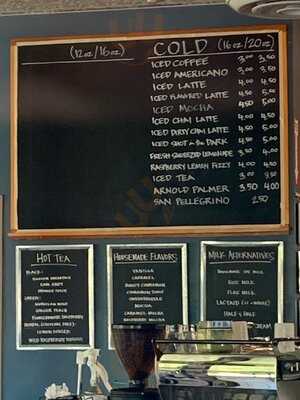 (12oz/16oz)
COLD (16oz/20oz)
ICED COFFEE 3.00 3.50
ICED AMERICANO 3.00 3.50
ICED LATTE 4.00 4.50
ICED FLAVORED LATTE 4.50 5.00
ICED MOCHA 4.50 5.00
ICED CHAI LATTE 4.00 4.50
ICED DIRTY CHAI LATTE 4.50 5.00
ICED SHOT in the DARK 4.50 5.00
FRESH SQUEEZED LEMONADE 3.50 4.00
RASPBERRY LEMON FIZZY 4.00 4.50
ICED TEA 3.00 3.50
ARNOLD PALMER 3.50 4.00
SAN PELLEGRINO 2.50
HOT TEA
BLACK:
ENGLISH BREAKFAST
EARL GREY
GREEN:
GINGER PEACH
POMEGRANATE RASPBERRY
HERBAL (CAFFEINE FREE):
LEMON GINGER
HOMEMADE FLAVORS
VANILLA
CARAMEL
HONEY CINNAMON
GINGERBREAD
MOCHA
CARAMEL MOCHA
RASPBERRY MOCHA
MILK ALTERNATIVES
RICE MILK
FLAX MILK
LACTAID (2% + WHOLE)
HALF & HALF